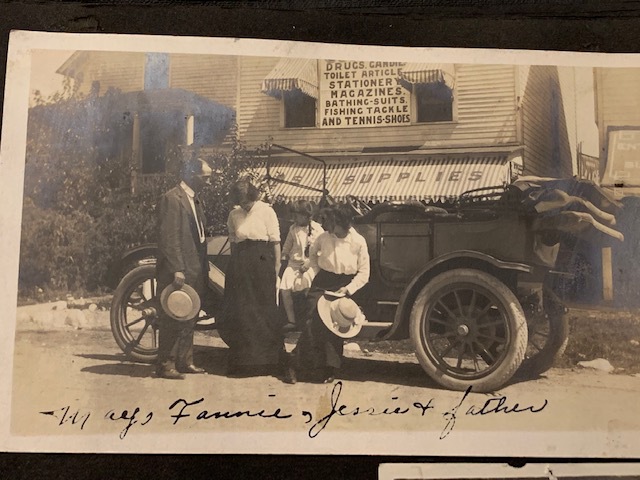 DRUGS. CANDIE
TOILET ARTICLE
STATIONERY
MAGAZINES.
BATHING-SUITS.
FISHING TACKLE
AND TENNIS-SHOES
SUPPLIES
Fannie, Jessie & father